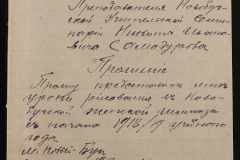 Преподавателя Ново-Бу-
ской Учительской Семи-
наріи Никиты
вича Самобурова
Прошеніе
Прошу предоставить мнѣ
уроки рисованія въ Ново-
Бугской женской гимназіи
съ начала 1918/9 учебного
года.